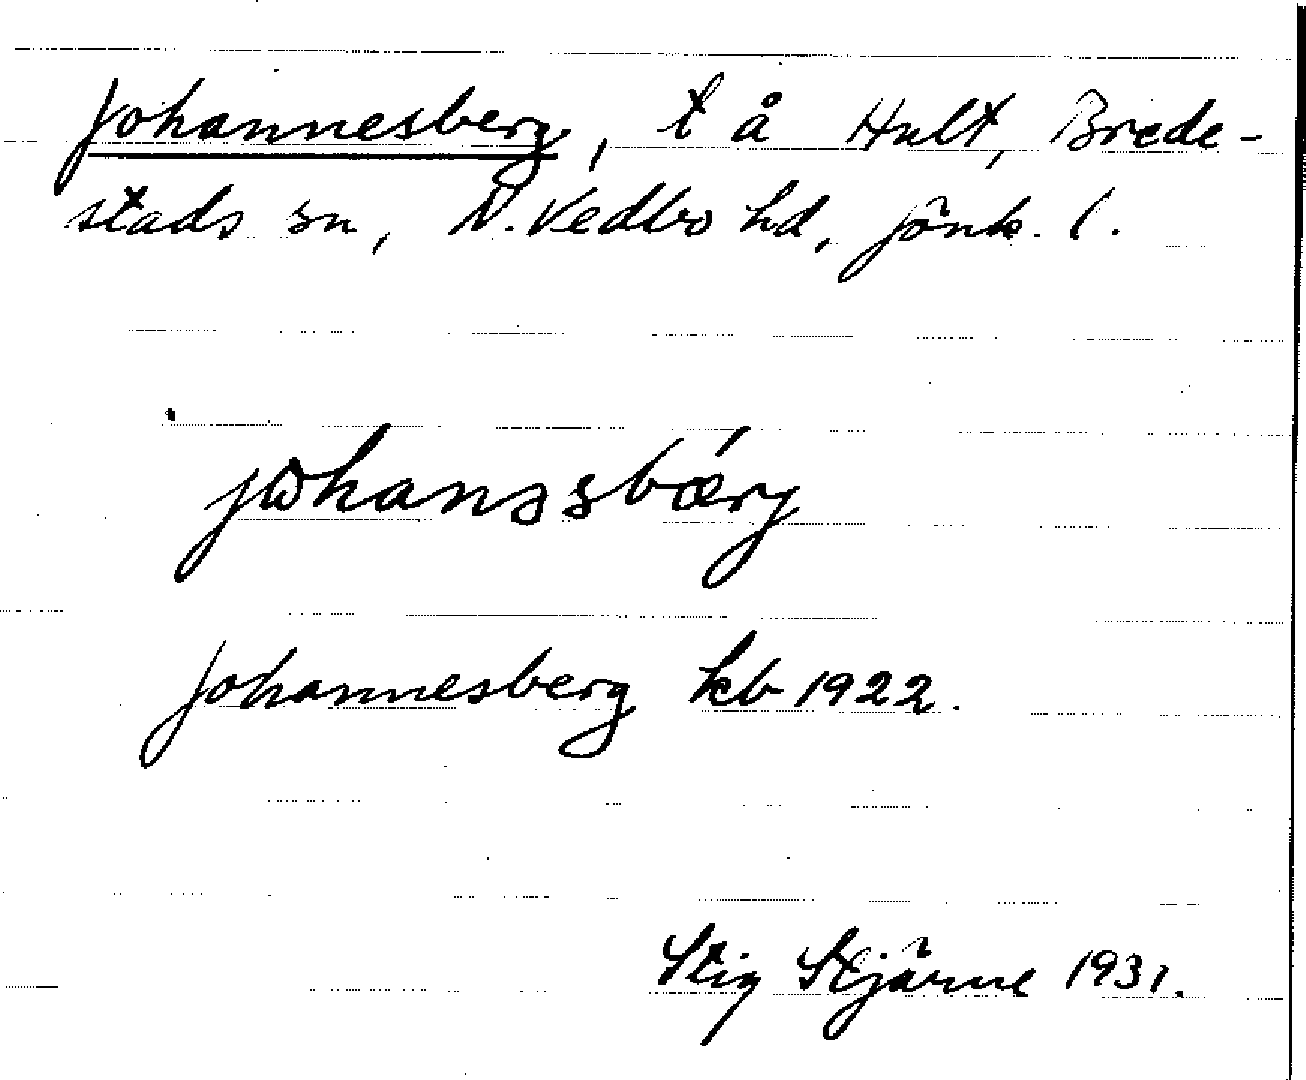 Johannesberg, t å Hult, Brede-
stads sn, N. Vedbo hd, Jönk. l.
jωhanssbǽrj
Johannesberg kb 1922.
Stig Stjärne 1931.